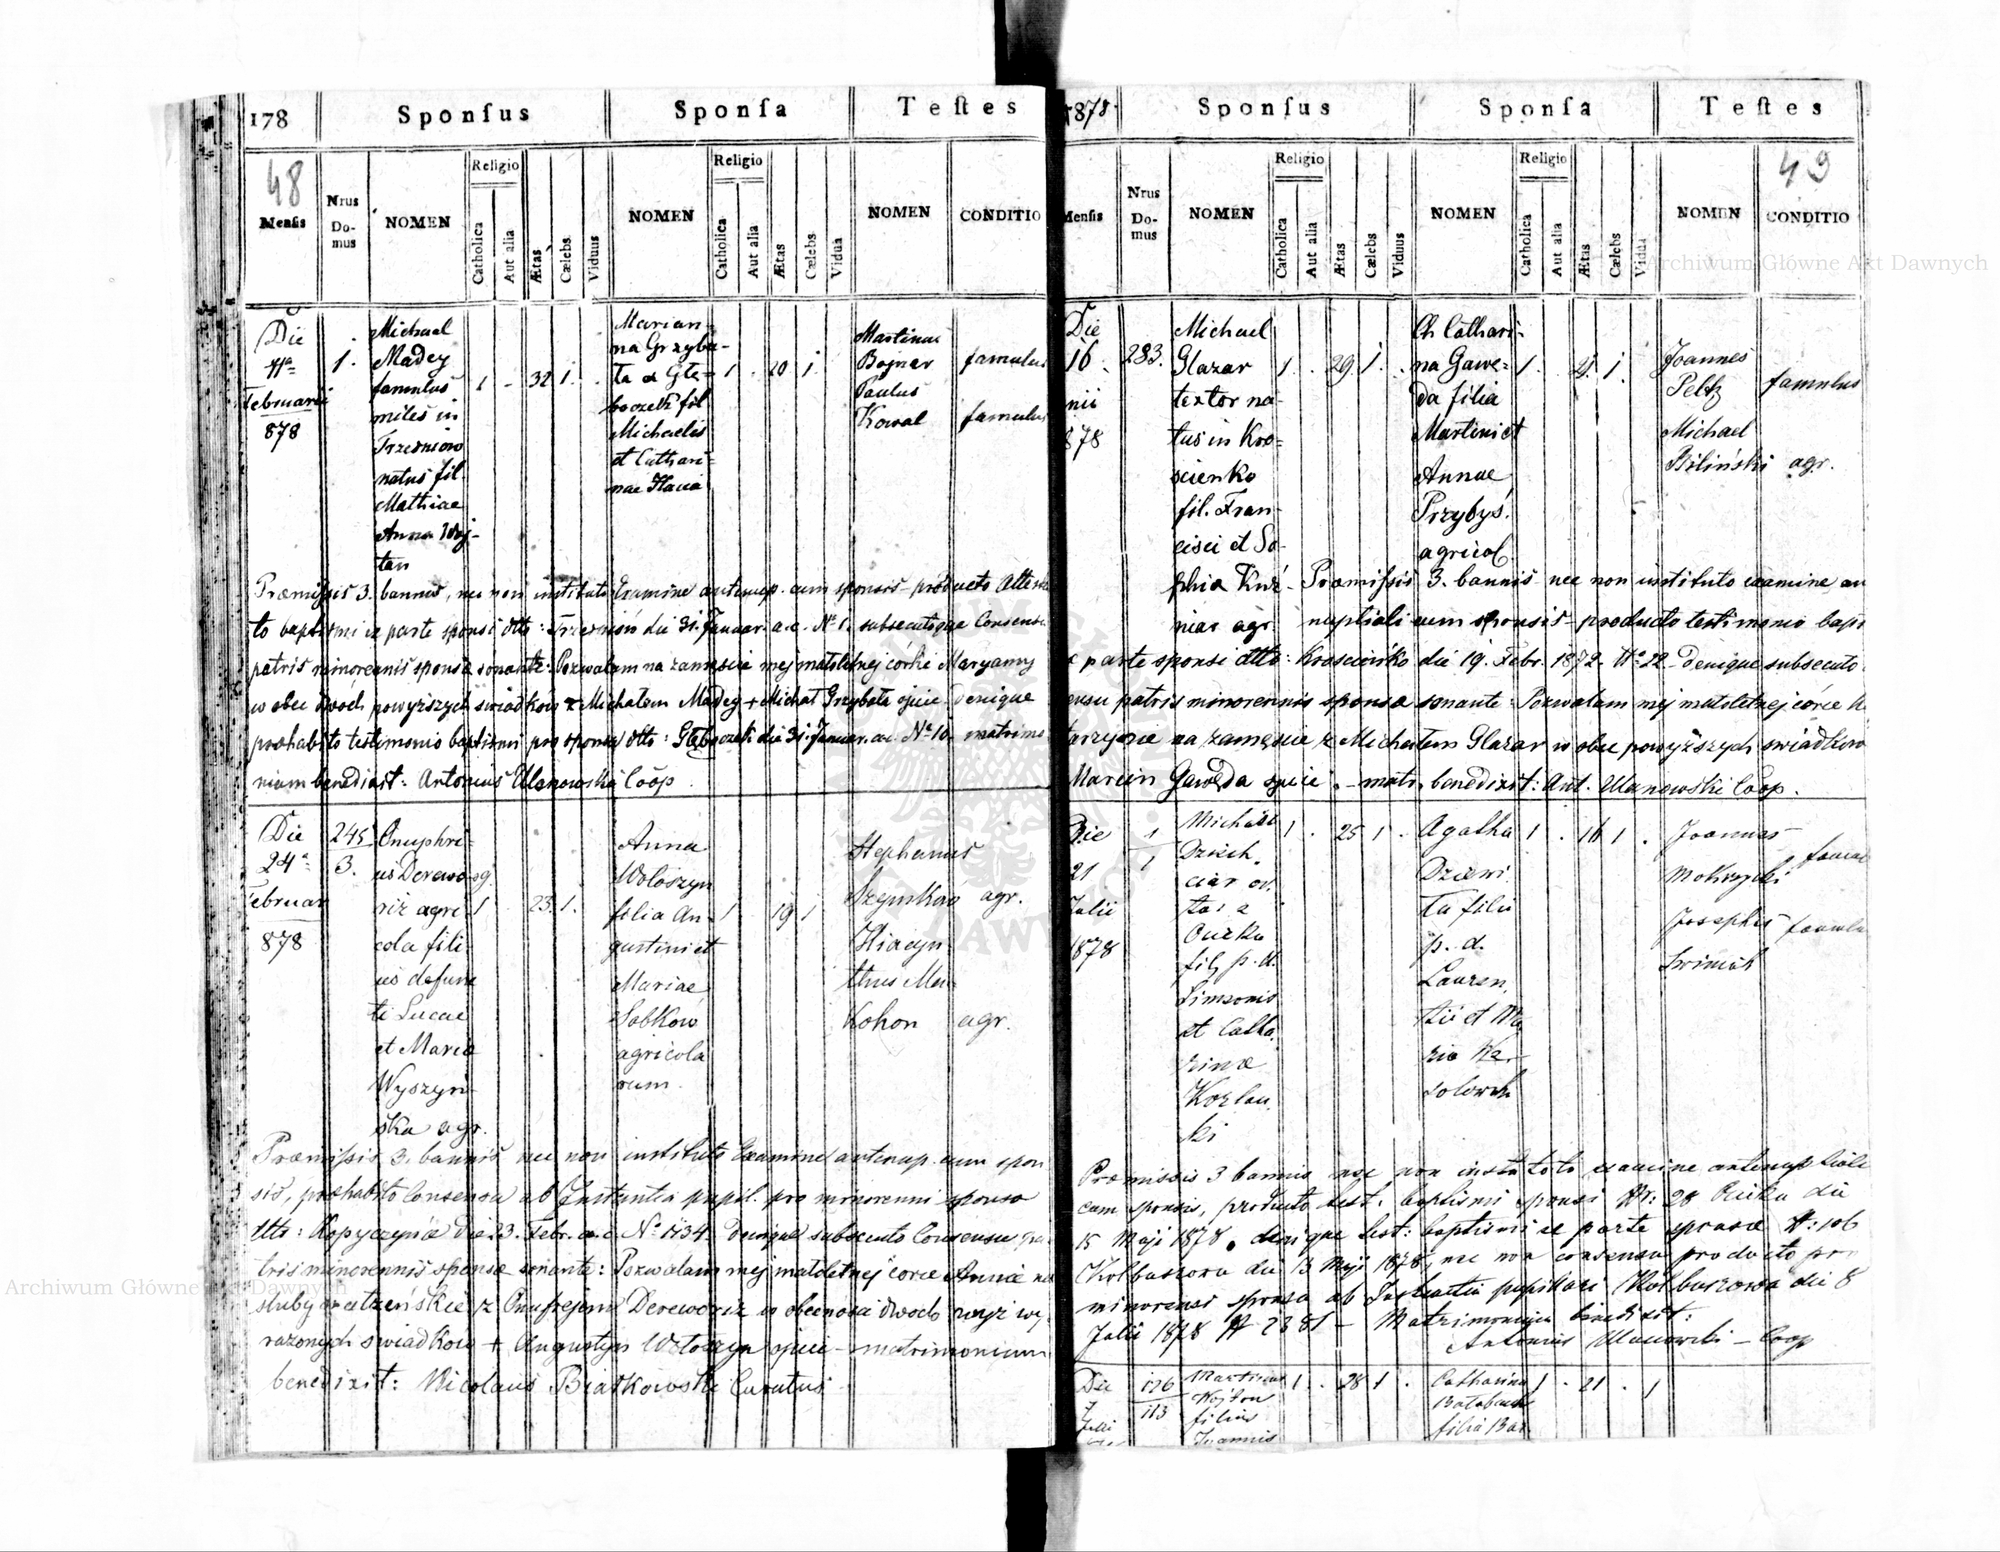 178 Sponſus Sponſa Teſtes
48
Menſis Nrus Domus NOMEN Religio Catholica Aut alia Ætas Cælebs Viduus NOMEN Religio Catholica Aut alia Ætas Cælebs Vidua NOMEN CONDITIO
Die
11a
Februarii
878
1.
Michael
Madey
famulus
miles in
natus fil.
Mathiae
Anna Woj-
tan
1 - 32 1.
Marian-
na Grzybo-
ta a Głę-
boczek fil
Michaelis
et Cathari-
nae
1 . 20 1.
Martinus
Bojnar famulus
Paulus
Kowal famulus
Præmissis 3. bannis, nec non instituto Examine antenup. cum sponsis - producto Attesta
to baptismi ex parte sponsi dtto: die 31. Januar. a.c. No 1. subsecutoque Consensu
patris minorennis sponsæ sonante: Pozwalam na zamęście mej małoletnej córki Maryanny
w obec dwoch powyższych świadków z Michałem Madey + Michał Grzybota ojciec denique
præhabito testimonio baptismi pro sponsa dtto: Głęboczek die 31. Januar. ac No 10. matrimo
nium benedixit: Antonius Ulanowski Coop.
Die
24a
Februar
878
245
3.
Onuphri-
us Derewo-
riz agri-
cola fili-
us defunc
ti Lucae
et Maria
Wyszyń-
ska agr.
1 . 23 1.
Anna
Wołoszyn
filia Au-
gustini et
Mariae
Sobkow
agricola
rum.
1 19 1
Stephanus
agr.
Hiacyn
thus Ma-
kohon agr.
Præmissis 3. bannis nec non instituto Examine antenup. cum spon
sis, præhabito Consensu ab Instantia pupil. pro minorenni sponso
dtto: Kopyczyńce die 23. Febr. a.c. No 1734. denique subsecuto Consensu pa
tris minorennis sponsæ sonante: Pozwalam mej małoletnej córce Annie na
śluby małżeńskie z Onufrejem Dereworiz w obecności dwoch wyż wy-
rażonych świadków + Augustyn Wołoszyn ojciec - matrimonium
benedixit: Nicolaus Białkowski Curatus
1878. Sponſus Sponſa Teſtes
49
Menſis Nrus Domus NOMEN Religio Catholica Aut alia Ætas Cælebs Viduus NOMEN Religio Catholica Aut alia Ætas Cælebs Vidua NOMEN CONDITIO
Die
16.
nii
878
283.
Michael
Glazar
textor na-
tus in Kro-
scienko
fil. Fran-
cisci et So-
phia Kuź-
niar agr
1 . 29 1.
Ch Cathari-
na Gawę-
da filia
Martini et
Annae
Przybyś.
agricol.
1. 1.
Joannes
Peltz famulus
Michael
Biliński agr.
Præmissis 3. bannis nec non instituto examine an
nuptiali cum sponsis - producto testimonio bapt
x parte sponsi dtto: Krościeńko die 19. Febr. 1872. No 22 denique subsecuto
ensu patris minorennis sponsæ sonante: Pozwalam mej małoletnej córce K
tarzynie na zamęście z Michałem Glazar w obec powyższych świadków
Marcin Gawęda ojciec. - matr. benedixit: Ant. Ulanowski Coop.
Die
21
Julii
1878
1
1
Michael
Dziech
ciar
fil. p. d.
Simeonis
et Catha
rinæ
Kozłow
ski
1 . 25 1 .
Agatha
filia
p. d.
Lauren
tii et Ma
ria
1 . 16 1 .
Joannes
Mokrzycki famul
Josephus famulu
Præmissis 3 bannis nec non instituto examine antenuptiali
cum sponsis, producto test: baptismi sponsi Nr: 28 die
15 Maji 1878. denique test: baptismi ex parte sponsæ N: 106
Kolbuszowa die 13 Maji 1878, nec non consensu producto pro
minorenni sponsa ab Instantia pupilari Kolbuszowa die 8
Julii 1878 N 2381 - Matrimonium benedixit:
Antonius Ulanowski - Coop
Die
7
Julii
126
113
Martinus
Wojton
filius
Joannis
1 . 28 1 .
Catharina
filia Bar
1 . 21 . 1
Archiwum Główne Akt Dawnych
Archiwum Główne Akt Dawnych